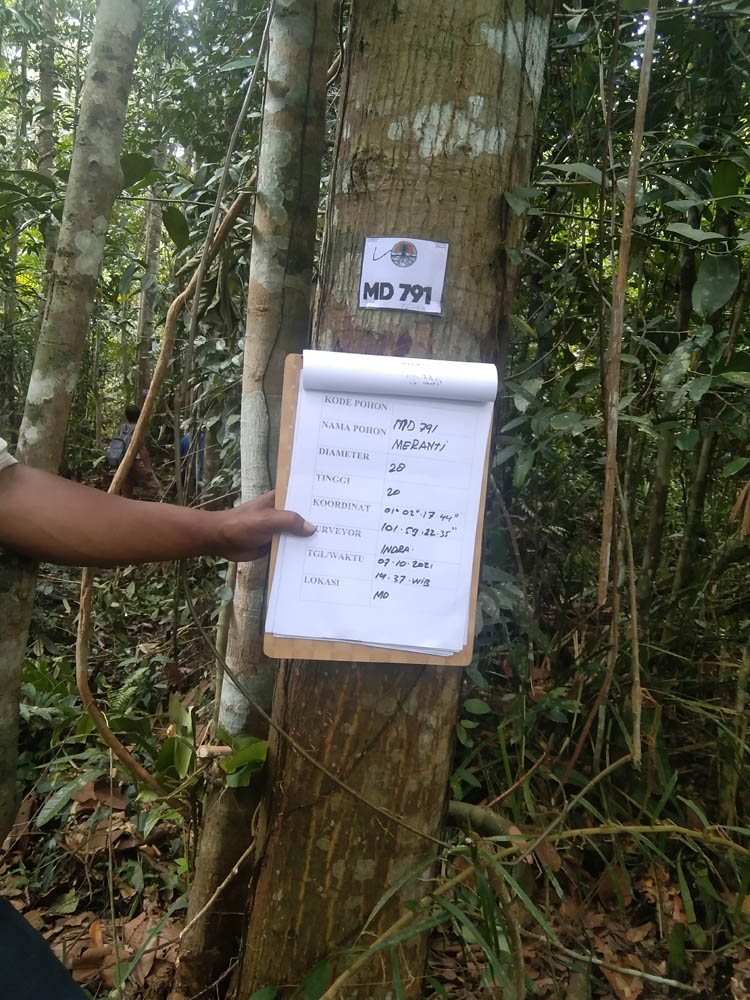 MD 791
KODE POHON MD 791
NAMA POHON MERANTI
DIAMETER 28
TINGGI 20
KOORDINAT 01° 02" 17.44"
101.59.22.35"
SURVEYOR INDRA.
TGL/WAKTU 07.10.2021
14.37.WIB
LOKASI MD